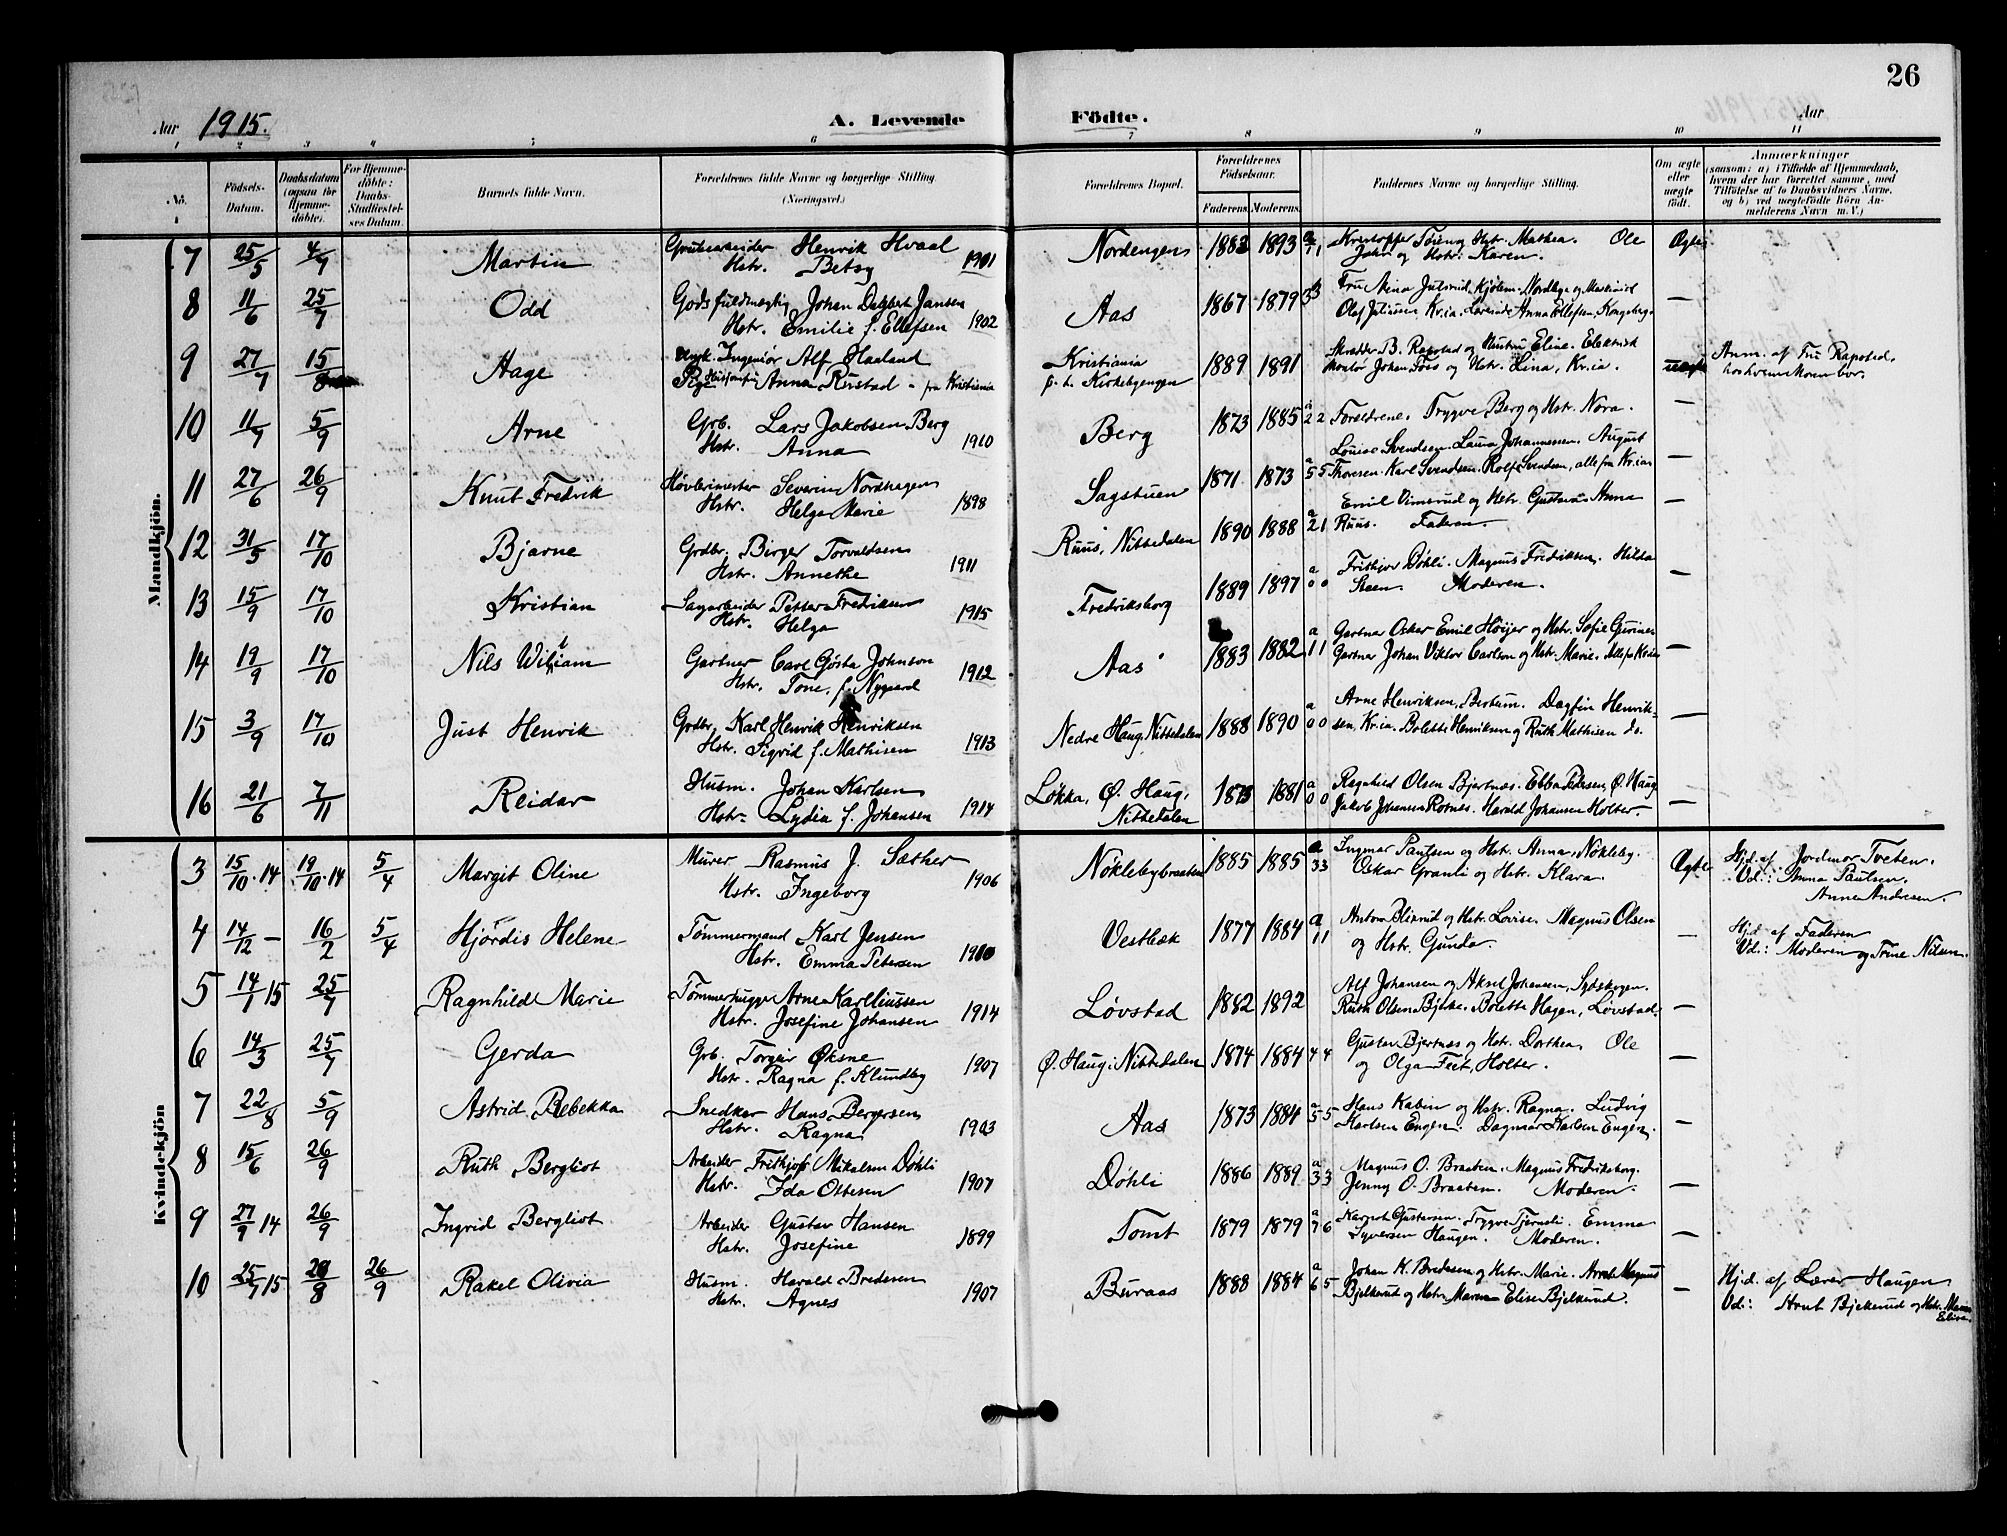 26
Aar 1915. A. Levende Födte. Aar
1 2 3 4 5 6 7 8 9 10 11
No. Födsels-Datum. Daabsdatum (ogsaa for Hjemme-döbte). For Hjemme-döbte: Daabs-Stadfæstel-ses Datum. Barnets fulde Navn. Forældrenes fulde Navne og borgerlige Stilling (Næringsvei.) Forældrenes Bopæl. Forældrenes Födselsaar. Faderens. Moderens. Faddernes Navne og borgerlige Stilling. Om ægte eller uægte födt. Anmærkninger (saasom: a) i Tilfælde af Hjemmedaab, hvem der har forrettet samme, med Tilföielse af to Daabsvidners Navne, og b) ved uægtefödte Börn Anmelderens Navn m. V.)
Mandkjön.
7 25/5 4/7 Martin Grubearbeider Henrik Hvaal Hstr. Betsy 1911 Nordengen 1883 1893 a 1 1 Kristoffer Töien og Hstr. Mathea. Ole John og Hstr. Karen. Ægte
8 11/6 25/7 Odd Godsfuldmægtig Johan Dagbert Jansen Hstr. Emilie f. Ellefsen 1902 Aas 1867 1879 3 3 Fru Mena Julsrud, Hjölem. Nordbye og Maskinist Olaf Juliussen Kr.ia. Lærerinde Anna Ellefsen, Kongsberg. —
9 27/7 15/8 Aage Ungk. Ingeniør Alf Haaland Pige Anna Rustad - fra Kristiania Kristiania f. t. Kirkebyengen 1889 1891 Skrædder B. Rapstad og Hustru Eline. Elektrisk Montör Johan Foss og Hstr. Lina, Kr.ia. uægte Anm. af Fru Rapstad, hos hvem Moren bor.
10 11/7 5/9 Arne Grb. Lars Jakobsen Berg Hstr. Anna 1910 Berg 1873 1885 a 2 2 Forældrene. Trygve Berg og Hstr. Nora. —
11 27/6 26/9 Knut Fredrik Høvlerimester Severin Nordhagen Hstr. Helga Marie 1898 Sagstuen 1871 1873 a 5 5 Louise Svendsen. Laura Johannessen. August Thoresen. Karl Svendsen. Rolf Svendsen, alle fra Kr.ia. —
12 31/5 17/10 Bjarne Grdbr. Birger Torvaldsen Hstr. Annethe 1911 Ruus, Nittedalen 1890 1888 a 2 1 Emil Vimsrud og Hstr. Gustava. Anna Ruus. Faderen. —
13 15/9 17/10 Kristian Sagarbeider Petter Fredriksen Hstr. Helga 1915 Fredriksborg 1889 1897 a 0 0 Frithjov Døhli. Magnus Fredriksen. Hilda Steen. Moderen. —
14 19/9 17/10 Nils William Gartner Carl Gösta Johnson Hstr. Tone, f. Nygaard 1912 Aas 1883 1882 a 1 1 Gartner Oskar Emil Höijer og Hstr. Sofie Gurine. Gartner Johan Viktor Carlson og Hstr. Marie. Alle fra Kr.ia —
15 3/9 17/10 Just Henrik Grdbr. Karl Henrik Henriksen Hstr. Sigrid f. Mathisen 1913 Nedre Haug, Nittedalen 1888 1890 a 0 0 Arne Henriksen, Bærum. Dagfin Henriksen, Kr.ia. Bolette Henriksen og Ruth Mathisen do. —
16 21/6 7/11 Reidar Husm. Johan Karlsen Hstr. Lydia f. Johansen 1914 Løkka, Ø. Haug, Nittedalen 1873 1881 a 0 0 Ragnhild Olsen Bjertnæs. Ebba Pedersen, Ø. Haug Jakob Johansen Rotnæs. Harald Johansen Holter. —
Kvindekjön
3 15/10·14 19/10·14 5/4 Margit Oline Murer Rasmus J. Sæther Hstr. Ingeborg 1906 Nöklebybraaten 1885 1885 a 3 3 Ingmar Paulsen og Hstr. Anna, Nökleby. Oskar Granli og Hstr. Klara. Ægte Hj.d. af Jordmor Tveten. Vd.: Anna Paulsen. Anne Andresen.
4 14/12 — 16/2 5/4 Hjördis Helene Tømmermand Karl Jensen Hstr. Emma Petersen 1910 Vestbæk 1877 1884 a 1 1 Anton og Hstr. Lovise. Magnus Olsen og Hstr. Gunda. — Hj.d. af Faderen Vd.: Moderen og Trine Nilsen.
5 14/1 15 25/7 Ragnhild Marie Tømmerhugger Arne Karlliussen Hstr. Josefine Johansen 1914 Løvstad 1882 1892 Alf Johansen og Aksel Johansen, Sydskogen. Ruth Olsen Bjerke. Bolette Hagen, Løvstad. —
6 14/3 25/7 Gerda Grb. Torgeir Øksne Hstr. Ragna f. Klundby 1907 Ø. Haug i Nittedalen 1874 1884 4 4 Gustav Bjertnæs og Hstr. Dorthea. Ole og Olga Feet, Holter. —
7 22/8 5/9 Astrid Rebekka Snedker Hans Bergersen Hstr. Ragna 1903 Aas 1873 1884 a 5 5 Hans Kabin og Hstr. Ragna. Ludvig Karlsen Engen. Dagmar Karlsen Engen. —
8 15/6 26/9 Ruth Bergliot Arbeider Frithjof Mikalsen Døhli Hstr. Ida Ottesen 1907 Døhli 1886 1889 a 3 3 Magnus O. Braaten. Magnus Fredriksborg. Jenny O. Braaten. Moderen. —
9 27/9 14 26/9 Ingrid Bergliot Arbeider Gustav Hansen Hstr. Josefine 1899 Tomt 1879 1879 a 7 6 Gustavsen. Trygve Tjernsli. Emma Syversen Haugen. Moderen. —
10 25/7 15 29/8 26/9 Rakel Olivia Husm. Harald Bredesen Hstr. Agnes 1907 Buraas 1888 1884 a 6 5 Johan K. Bredesen og Hstr. Marie. Magnus Bjelkerud og Hstr. Maren Elise Bjelkerud. — Hj.d. af Lærer Haugen. Vd.: Bjelkerud og Hstr. Maren Elise.